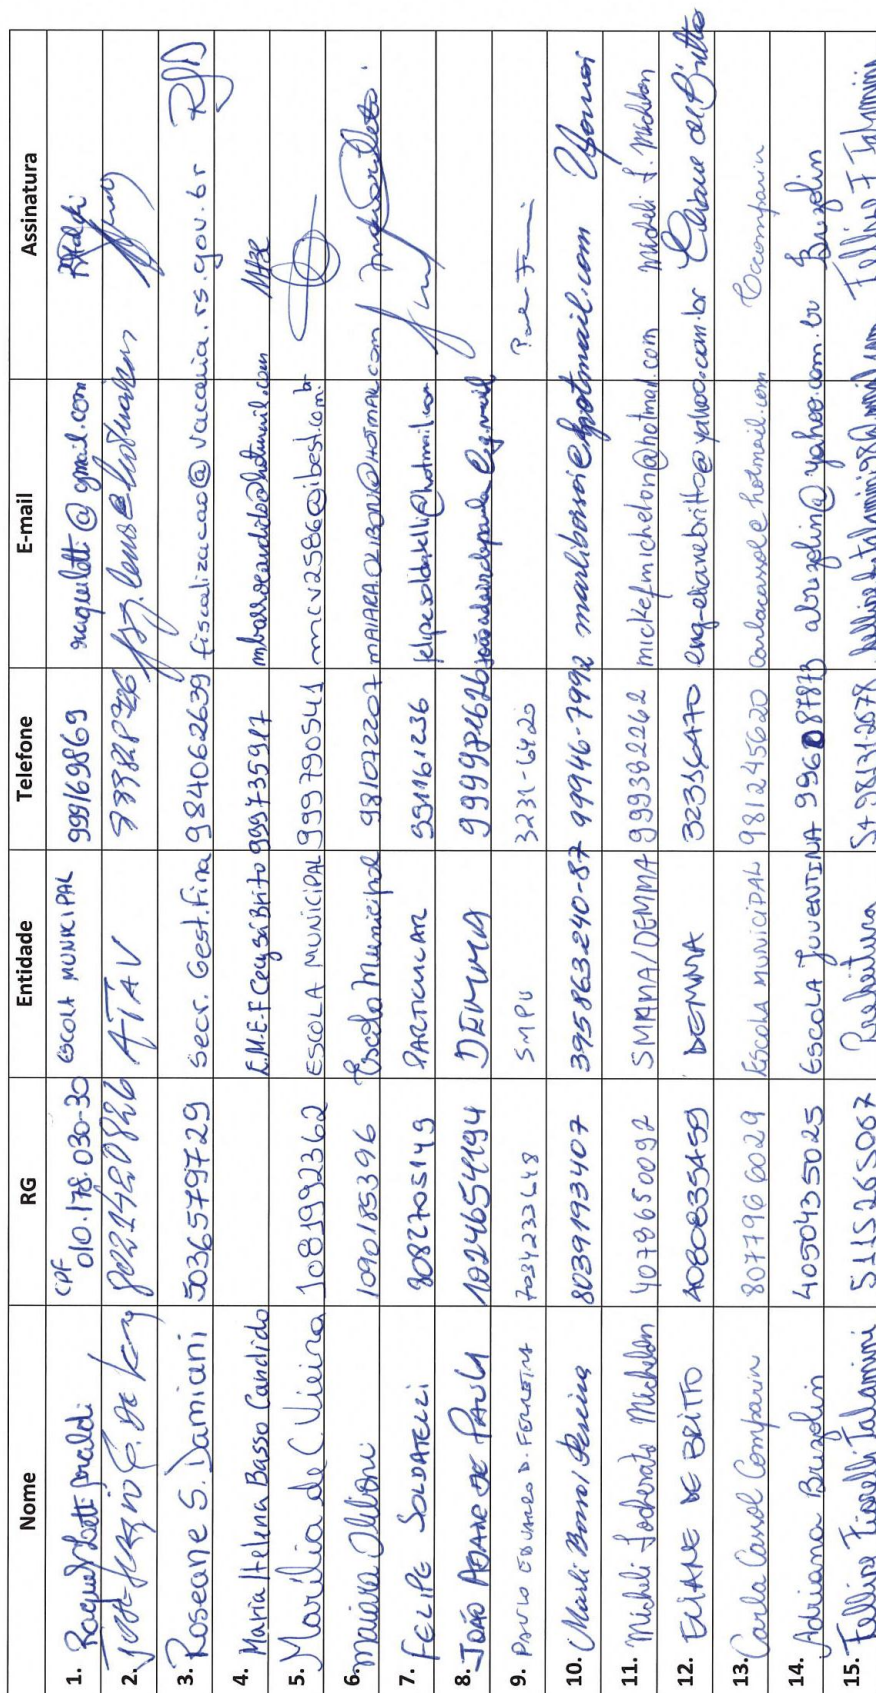 Nome RG Entidade Telefone E-mail Assinatura
1. CPF 010.178.030-30 ESCOLA MUNICIPAL 999169869 @gmail.com
2. ATAV
3. Roseane S. Damiani 5036579729 Secr. Gest. Fina 984062639 fiscalizacao@vacaria.rs.gov.br
4. Maria Helena Basso Candido E.M.E.F 999735917 mbassocandido@hotmail.com
5. Marilia de C. Vieira 1081992362 ESCOLA MUNICIPAL 999790541 mcv2586@ibest.com.br
6. Maiara Oliboni 1090185396 Escola Municipal 981072207 MAIARAOLIBONI@HOTMAIL.COM
7. FELIPE SOLDATELLI 3082705149 PARTICULAR 991161236 felipesoldatelli@hotmail.com
8. JOÃO DE PAULA 1024654194 DEMMA 999971626
9. PAULO EDUARDO D. FERREIRA 7034233648 SMPU 3231-6420
10. Marli Borsoi Pereira 8039193407 395863240-87 99946-7992 marliborsoi@hotmail.com
11. Micheli Michelon 4079650092 SMAMA/DEMMA 999382262 mickefmichelon@hotmail.com Micheli F. Michelon
12. ELIANE DE BRITTO 4080835459 DEMMA 32316470 eng-elianebritto@yahoo.com.br Eliane de Britto
13. Carla Cassol Comparin 8077966029 Escola MUNICIPAL 981245620 carlacassol@hotmail.com Ccomparin
14. Adriana Brezolin 4050435025 ESCOLA JUVENTINA 996087873 abrezolin@yahoo.com.br Brezolin
15. Fellipe Fiorelli Talamini 5115265067 Prefeitura 54 98131-2678 Fellipe F Talamini